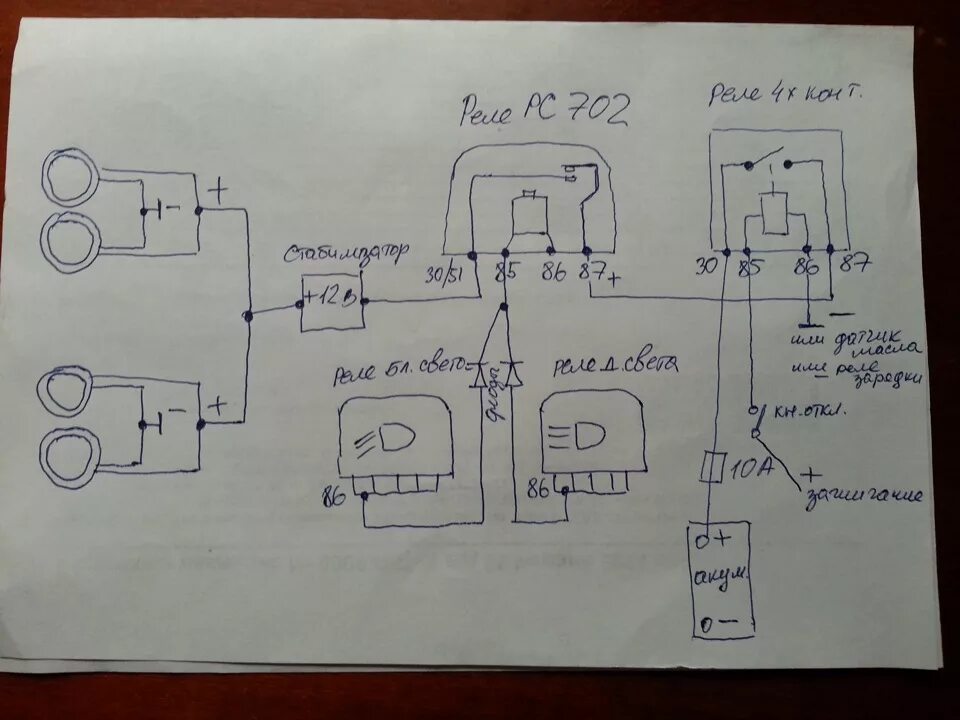 Реле РС 702
Реле 4х конт.
+
-
Стабилизатор
+12в
30/51
85
86
87
+
30
85
86
87
-
или датчик
масла
или реле
зарядки
Реле Бл. света
диоды
реле д. света
86
86
кн. откл.
+
зажигание
10А
+
акум.
-
+
-